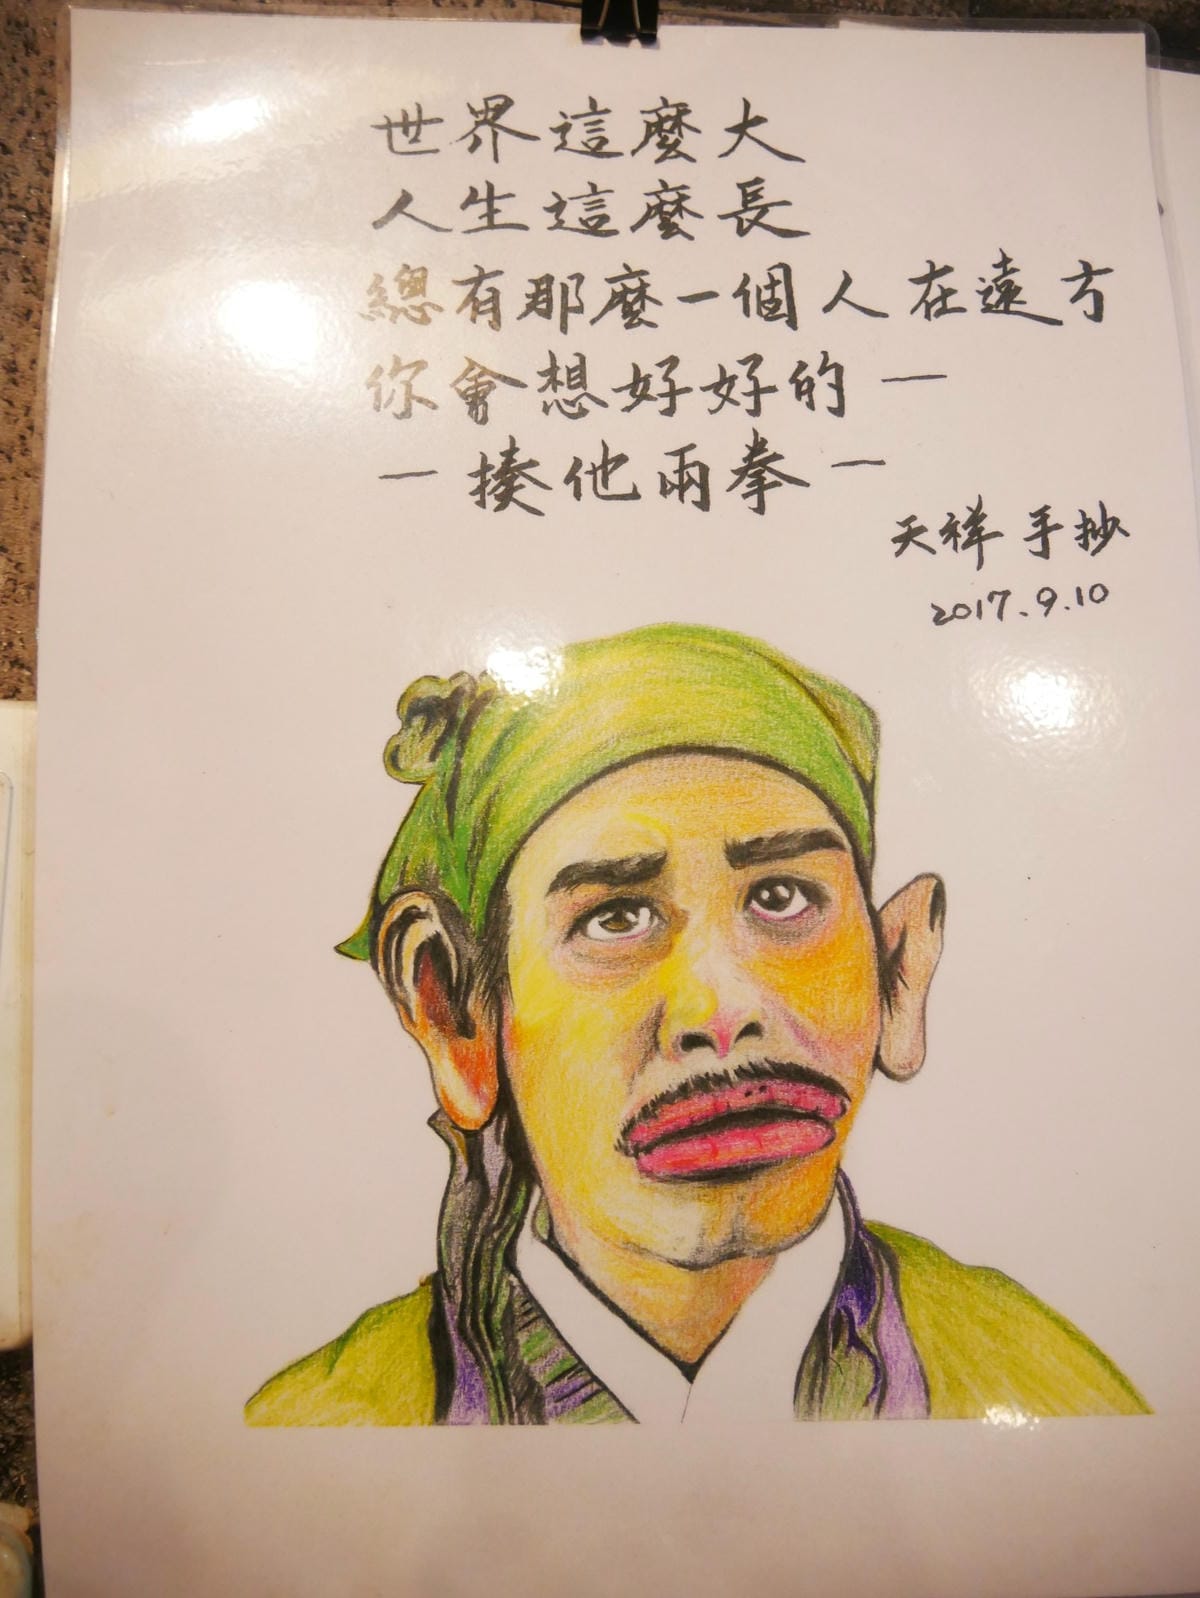 世界這麼大
人生這麼長
總有那麼一個人在遠方
你會想好好的—
—揍他兩拳—
天祥 手抄
2017.9.10